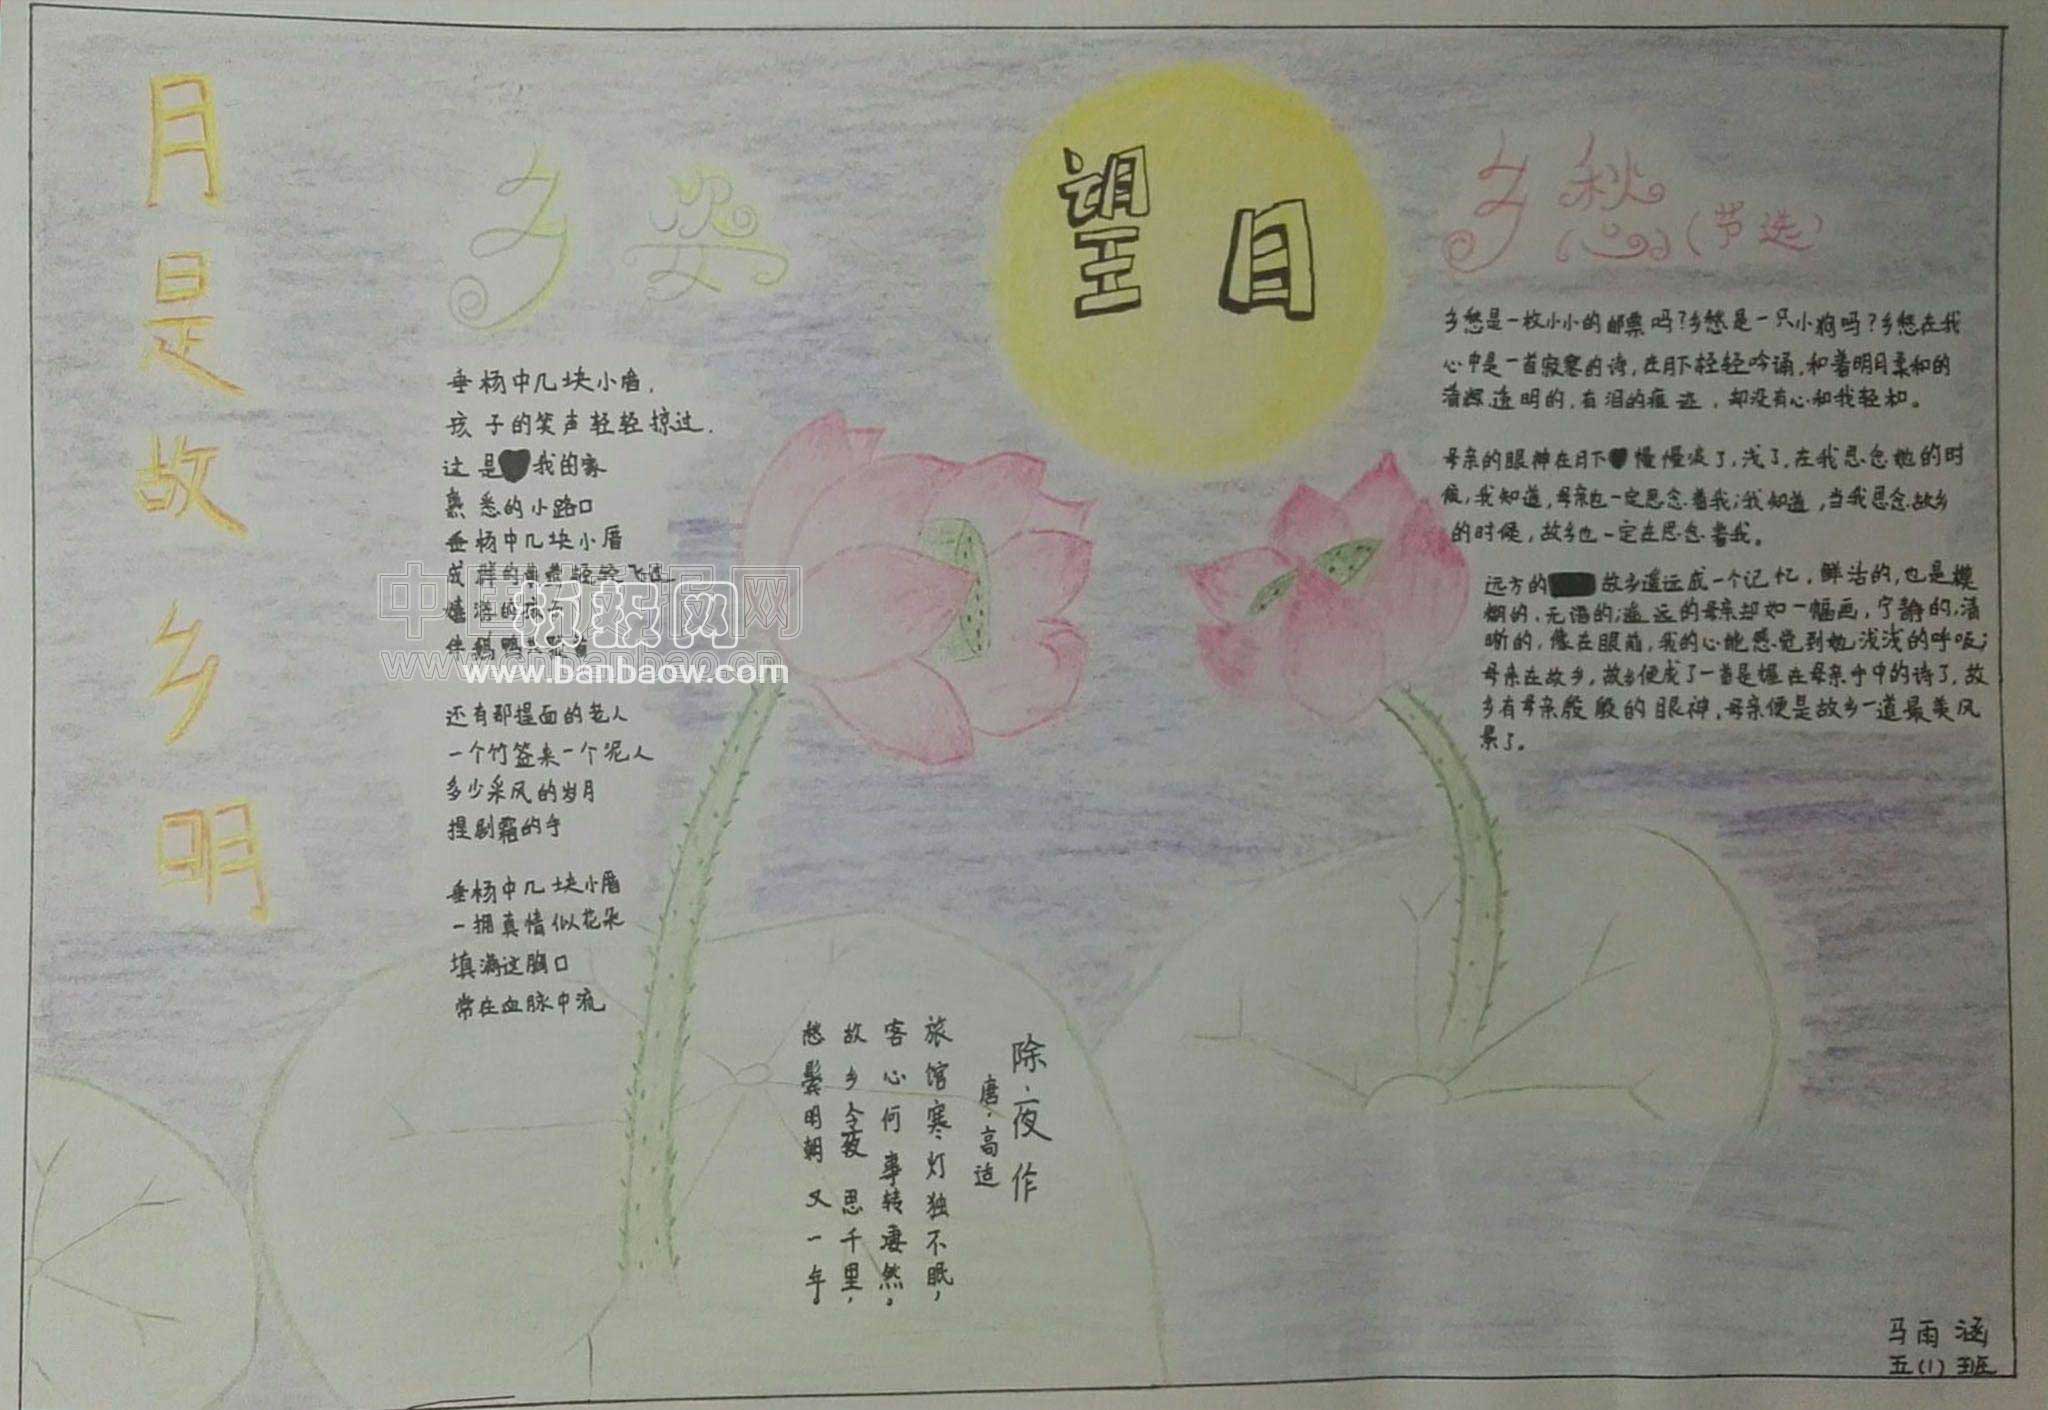 月是故乡明
乡姿
垂杨中几块小厝，
孩子的笑声轻轻掠过，
这是我的家
熟悉的小路口
垂杨中几块小厝
成群的 轻轻飞过
嬉游的孩子
伴鹅鸭
还有那捏面的老人
一个竹签来一个泥人
多少采风的岁月
捏剧霜的手
垂杨中几块小厝
一拥真情似花朵
填满这胸口
常在血脉中流
望月
乡愁(节选)
乡愁是一枚小小的邮票吗?乡愁是一只小狗吗?乡愁在我
心中是一首寂寞的诗，在月下轻轻吟诵，和着明月柔和的
清辉，透明的，有泪的痕迹，却没有心和我轻和。
母亲的眼神在月下慢慢淡了，浅了，在我思念她的时
候，我知道，母亲也一定思念着我；我知道，当我思念故乡
的时候，故乡也一定在思念着我。
远方的故乡遥远成一个记忆，鲜活的，也是模
糊的，无语的；遥远的母亲却如一幅画，宁静的，清
晰的，像在眼前，我的心能感觉到她浅浅的呼吸；
母亲在故乡，故乡便成了一首是握在母亲手中的诗了，故
乡有母亲殷殷的眼神，母亲便是故乡一道最美风
景了。
除夜作
唐·高适
旅馆寒灯独不眠，
客心何事转凄然。
故乡今夜思千里，
愁鬓明朝又一年。
马雨涵
五(1)班
中国板报网
板报网
www.banbaow.com